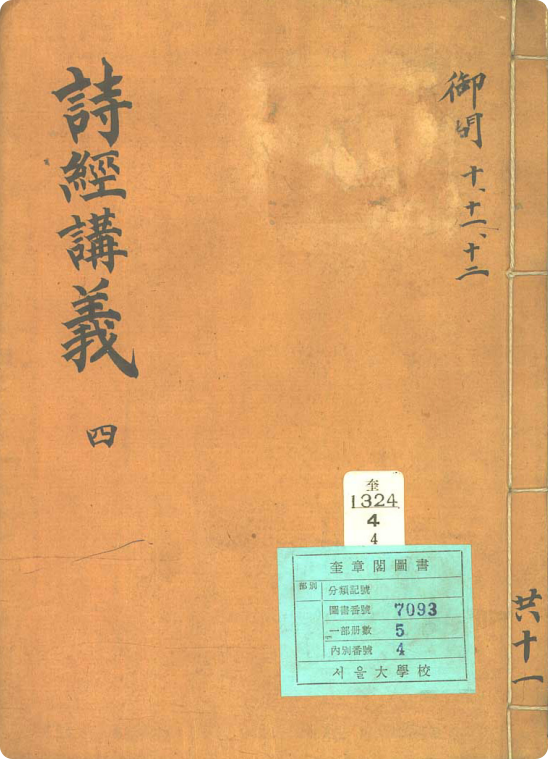 詩經講義 四
御明 十、十一、十二
共十一
奎
1324
4
4
奎章閣圖書
部別
分類記號
圖書番號 7093
一部册數 5
內別番號 4
서울大學校